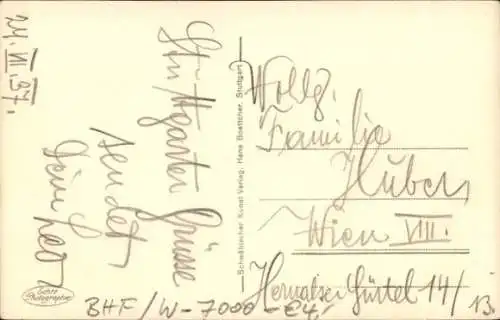 24. VII. 37.
Stuttgarter Grüsse
sendet
Schwäbischer Kunst-Verlag, Hans Boettcher, Stuttgart
Wollg.
Familie
Huber
Wien VIII.
Hernalser Gürtel 14/13.
Echte
Photographie
BHF/W-7000-E4/